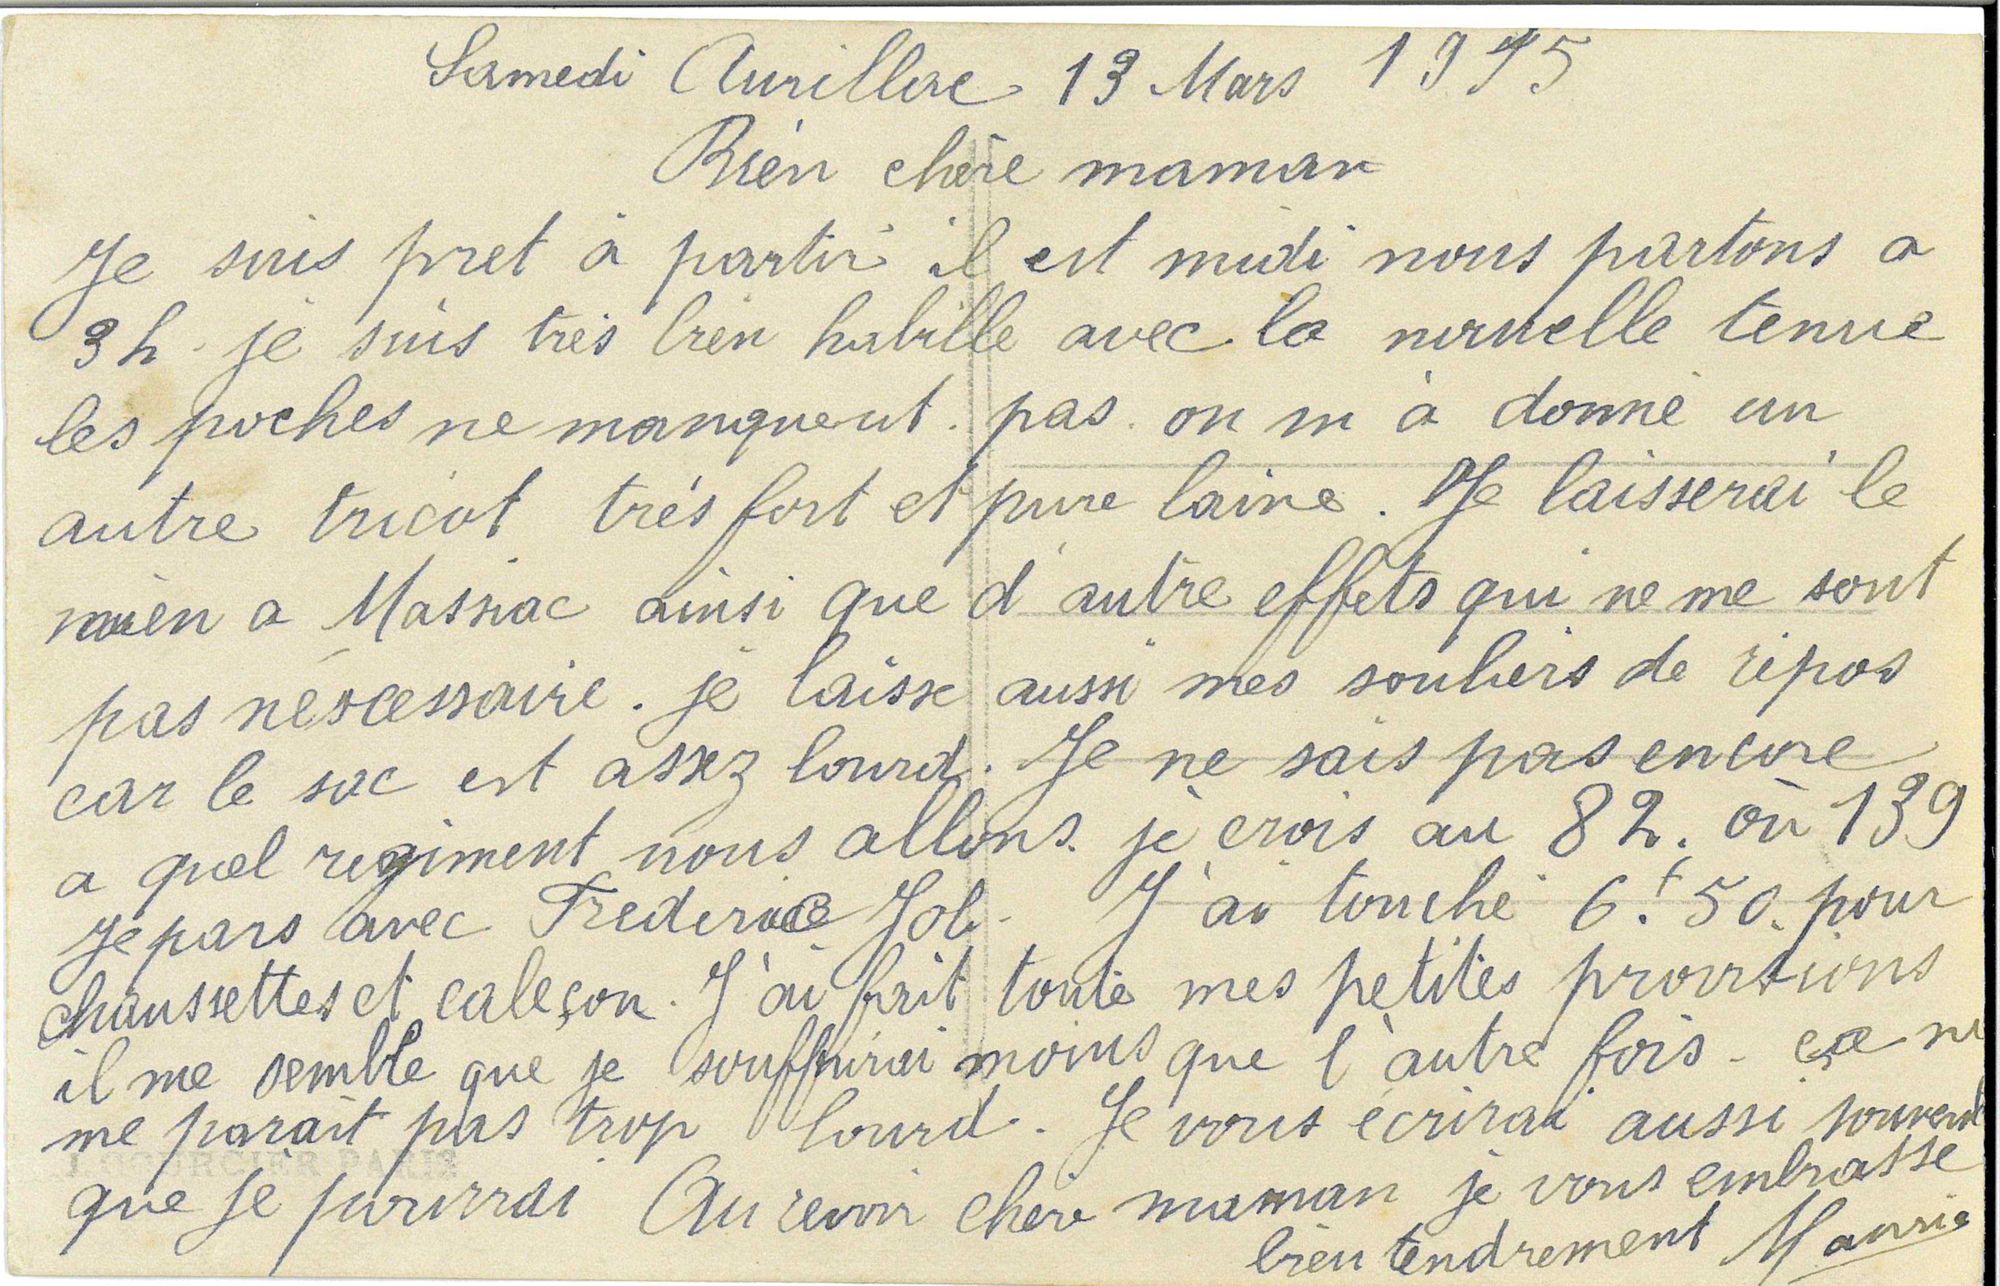 Samedi Aurillac 13 Mars 1915
Bien chère maman
Je suis pret à partir il est midi nous partons a
3h. je suis très bien habille avec la nouvelle tenue
les poches ne manquent pas. on m à donné un
autre tricot très fort et pure laine. Je laisserai le
mien a Massiac ainsi que d'autre effets qui ne me sont
pas néscessaire. je laisse aussi mes souliers de repos
car le sac est assez lourd. Je ne sais pas encore
a quel regiment nous allons. je crois au 82. ou 139
Je pars avec Frederic Jol. J'ai touché 6.f 50. pour
chaussettes et caleçon. J'ai fait toute mes petites provisions
il me semble que je souffrirai moins que l'autre fois - ça ne
me parait pas trop lourd. Je vous écrirai aussi souvent
que je pourrai Au revoir chère maman je vous embrasse
bien tendrement Mauric
J. COURCIER PARIS